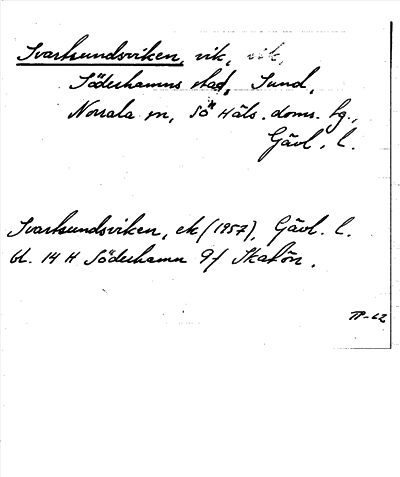 Svartsundsviken, vik, vik,
Söderhamns stad, Sund,
Norrala sn, Sö Häls. doms. hg.,
Gävl. l.
Svartsundsviken, ek (1957), Gävl. l.
bl. 14 H Söderhamn 9f Skatön.
TP-62